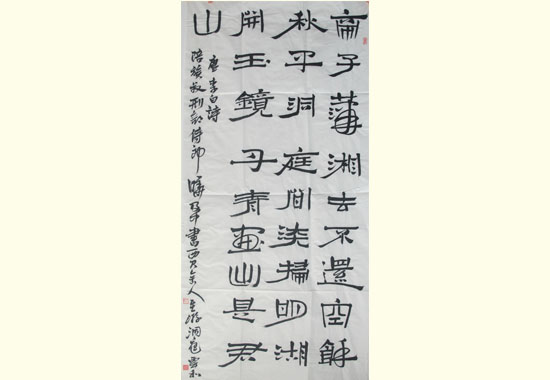 帝子瀟湘去不還空餘
秋草洞庭間淡掃明湖
開玉鏡丹青畫出是君
山
唐李白詩
陪族叔刑部侍郎曄及中書賈舍人至游洞庭